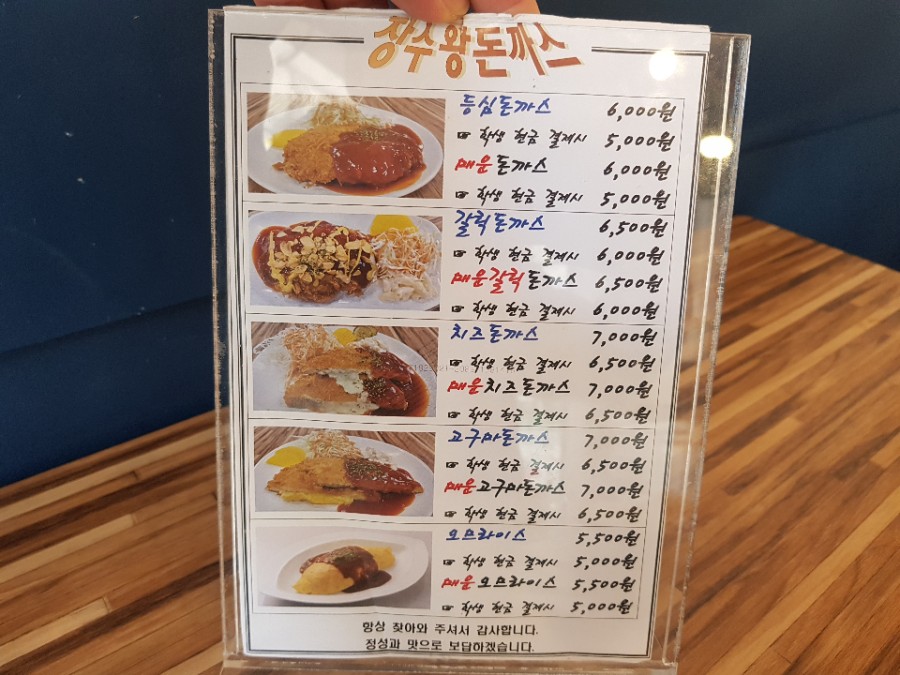 장수왕돈까스
등심돈까스 6,000원
☞ 학생 현금 결제시 5,000원
매운돈까스 6,000원
☞ 학생 현금 결제시 5,000원
갈릭돈까스 6,500원
☞ 학생 현금 결제시 6,000원
매운갈릭돈까스 6,500원
☞ 학생 현금 결제시 6,000원
치즈돈까스 7,000원
☞ 학생 현금 결제시 6,500원
매운치즈돈까스 7,000원
☞ 학생 현금 결제시 6,500원
고구마돈까스 7,000원
☞ 학생 현금 결제시 6,500원
매운고구마돈까스 7,000원
☞ 학생 현금 결제시 6,500원
오므라이스 5,500원
☞ 학생 현금 결제시 5,000원
매운오므라이스 5,500원
☞ 학생 현금 결제시 5,000원
항상 찾아와 주셔서 감사합니다.
정성과 맛으로 보답하겠습니다.